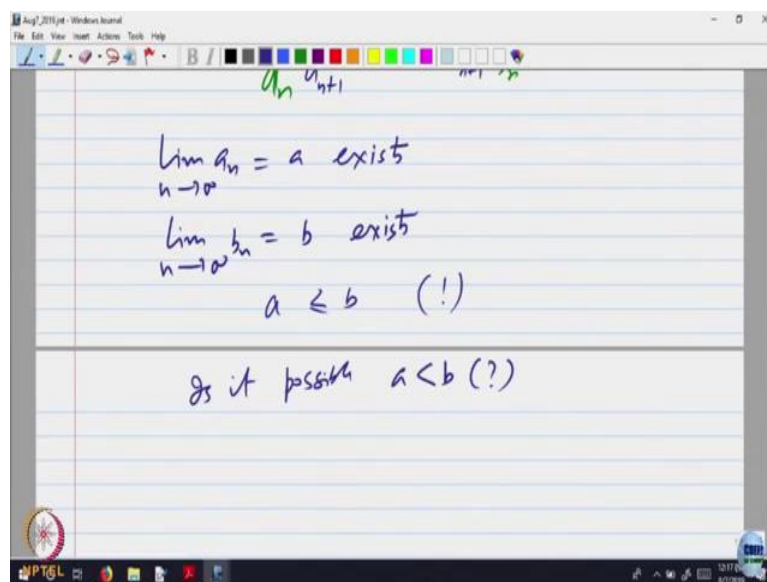 Aug7_2019.jnt - Windows Journal
File Edit View Insert Actions Tools Help
B I
a_n a_{n+1}
lim a_n = a exist
n→∞
lim b_n = b exist
n→∞
a ≤ b (!)
Is it possible a < b (?)
NPTEL